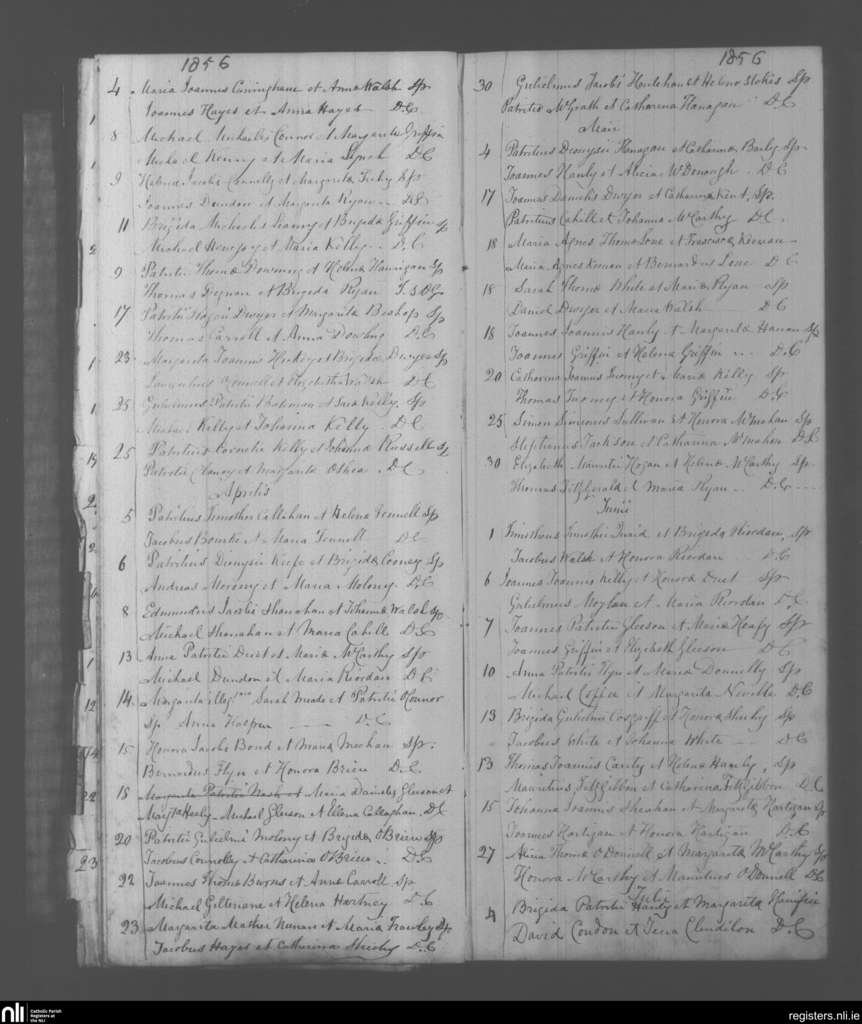 1856
4 Maria Joannis Cuninghane et Anna Walsh Sp
Joannes Hayes et Anna Hayes D.C
1
8 Michael Michaelis Connor et Margarita Griffin
Michael Kenny et Maria Lynch D.C
1
9 Helena Jacobi Connelly et Margarita Sp
Joannes Dundon et Margarita Ryan D.C
11 Brigida Michaelis et Brigida Griffin Sp
Michael et Maria Kelly D.C
2
9 Patritii Thoma Downing et Helena Hannigan Sp
Thomas Degnan et Brigida Ryan
17 Dwyer et Margarita Bishop Sp
Thomas Carroll et Anna Dowling D.C
23 Margarita Joannis Hickey et Brigida Dwyer Sp
1
et Elizabetha Walsh D.C
25 Gulielmus Patritii Bateman et Sara Kelly Sp
1
Michael Kelly et Johanna Kelly D.C
25 Patritius Cornelii Kelly et Johanna Russell Sp
Patritii Clancy et Margarita Oshea D.C
Aprilis
5 Patritius Timothei Callahan et Helena Fennell Sp
Jacobus Bourke et Maria Fennell D.C
6 Patritius Dionysii Keefe et Brigida Cooney Sp
Andreas Morony et Maria Molony D.C
8 Edmundus Jacobi Shanahan et Johanna Walsh Sp
Michael Shanahan et Maria Cahill D.C
13 Anna Patritii Duet et Maria McCarthy Sp
1
Michael Dundon et Maria Riordan D.C
14 Margarita Sarah Meade et Patritii OConnor
12
Sp Anna D.C
15 Honora Jacobi Bond et Maria Meehan Sp
Bernardus Flyn et Honora Brien D.C
18 Margarita Patritii et Maria Danielis Gleeson et
22
Margta Healy Michael Gleeson et Ellena Callaghan D.C
20 Patritii Gulielmi Molony et Brigida O'Brien Sp
Jacobus Connolly et Catharina O'Brien D.C
23
22 Joannes Thoma Burns et Anna Carroll Sp
Michael et Helena Hartney D.C
23 Margarita Mathei Nunan et Maria Frawley Sp
Jacobus Hayes et Catharina Sheehy D.C
1856
30 Gulielmus Jacobi Houlahan et Helena Stokes Sp
Patritii McGrath et Catharina Flanagan D.C
Maii
4 Patritius Dionysii Flanagan et Catharina Baily Sp
Joannes Hanly et Alicia McDonough D.C
17 Joannes Danielis Dwyer et Catharina Kent, Sp
Patritius Cahill et Johanna McCarthy D.C
18 Maria Agnes Thoma Lone et Francisca Keenan
Maria Agnes Keenan et Bernardus Lone D.C
18 Sarah Thoma White et Maria Ryan Sp
Daniel Dwyer et Maria Walsh D.C
18 Joannes Joannis Hanly et Margarita Hannan Sp
Joannes Griffin et Helena Griffin D.C
20 Catharina Joannis Twomy et Maria Kelly Sp
Thomas Twomy et Honora Griffin D.C
25 Simon Simonis Sullivan et Honora McMahon Sp
Stephanus Jackson et Catharina McMahon D.C
30 Elizabeth Mauritii Hogan et Helena McCarthy Sp
Thomas Fitzgerald et Maria Ryan D.C
Junii
1 Timotheus Timothei Quaid et Brigida Riordan, Sp
Jacobus Walsh et Honora Riordan D.C
6 Joannes Joannis Kelly et Honora Duet Sp
Gulielmus Moylan et Maria Riordan D.C
7 Joannes Patritii Gleeson et Maria Heafy Sp
Joannes Griffin et Elizabeth Gleeson D.C
10 Anna Patritii Flyn et Maria Donnelly Sp
Michael Coffee et Margarita Neville D.C
13 Brigida Gulielmi Cosgriff et Honora Sheehy Sp
Jacobus White et Johanna White D.C
13 Thomas Joannis Canty et Helena Hanly Sp
Mauritius Fitzgibbon et Catharina Fitzgibbon D.C
15 Johanna Joannis Sheahan et Margarita Hartigan Sp
Joannes Hartigan et Honora Hartigan D.C
27 Alicia Thoma O'Donnell et Margarita McCarthy Sp
Honora McCarthy et Mauritius O'Donnell D.C
Julii
4 Brigida Patritii Hanly et Margarita
David Condon et D.C
nli
Catholic Parish
Registers at
the NLI
registers.nli.ie